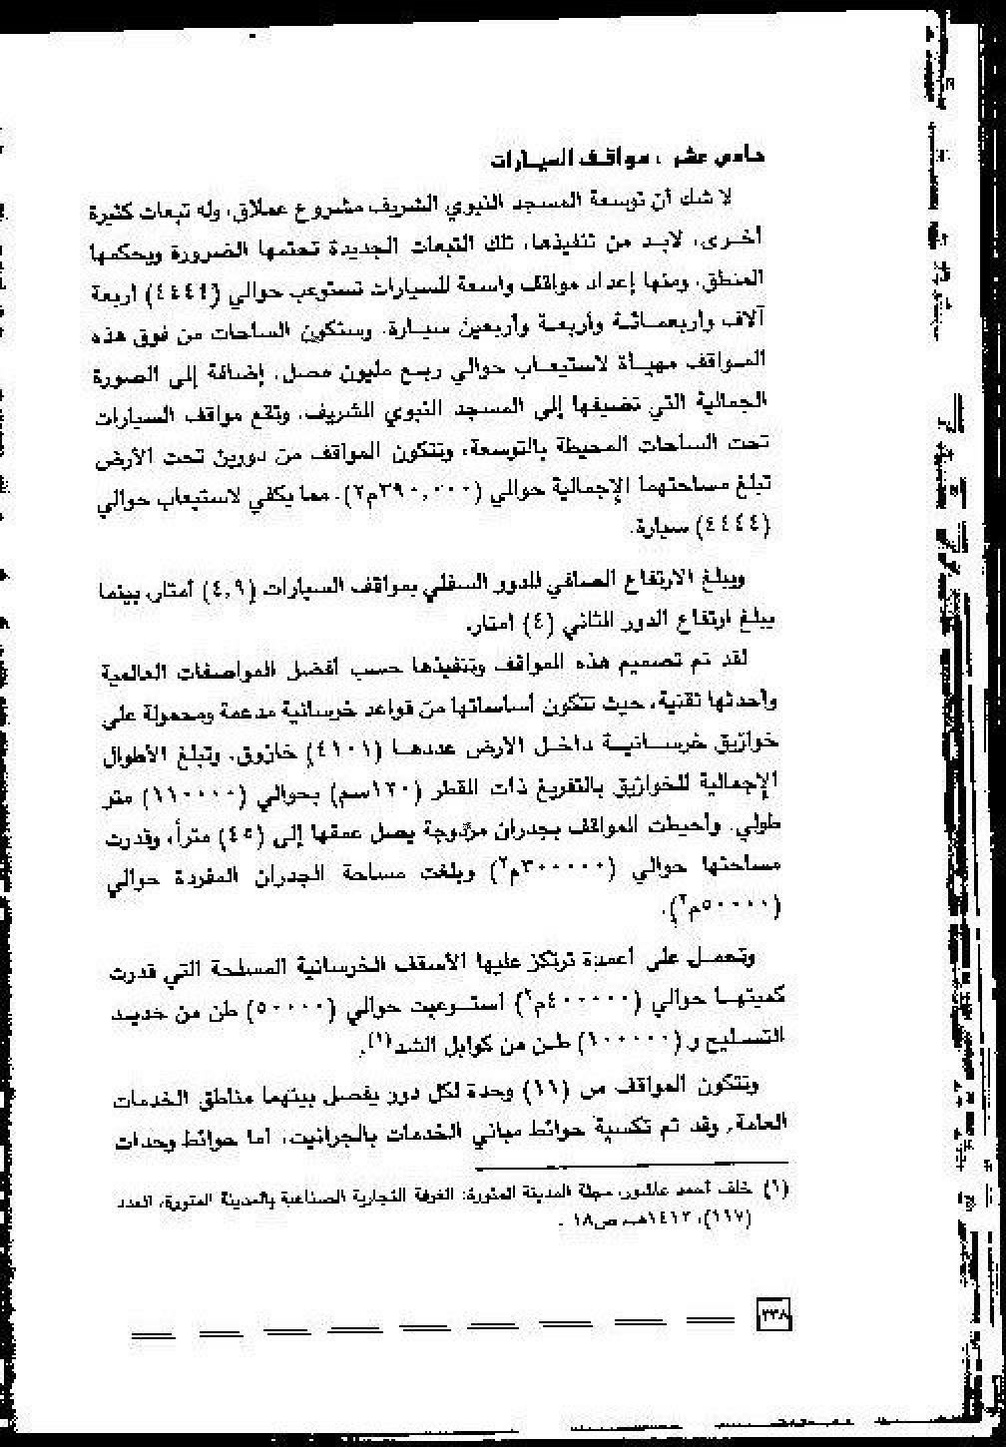 حادي عشر : مواقف السيارات
لا شك أن توسعة المسجد النبوي الشريف مشروع عملاق، وله تبعات كثيرة
أخرى، لابد من تنفيذها، تلك التبعات الجديدة تحتمها الضرورة ويحكمها
المنطق، ومنها إعداد مواقف واسعة للسيارات تستوعب حوالي (٤٤٤٤) أربعة
آلاف وأربعمائة وأربعة وأربعين سيارة. وستكون الساحات من فوق هذه
المواقف مهيأة لاستيعاب حوالي ربع مليون مصل، إضافة إلى الصورة
الجمالية التي تضيفها إلى المسجد النبوي الشريف، وتقع مواقف السيارات
تحت الساحات المحيطة بالتوسعة، وتتكون المواقف من دورين تحت الأرض
تبلغ مساحتهما الإجمالية حوالي (٣٩٠,٠٠٠م٢)، مما يكفي لاستيعاب حوالي
(٤٤٤٤) سيارة.
ويبلغ الارتفاع الصافي للدور السفلي بمواقف السيارات (٤,٩) أمتار، بينما
يبلغ ارتفاع الدور الثاني (٤) أمتار.
لقد تم تصميم هذه المواقف وتنفيذها حسب أفضل المواصفات العالمية
وأحدثها تقنية، حيث تتكون أساساتها من قواعد خرسانية مدعمة ومحمولة على
خوازيق خرسانية داخل الأرض عددها (٤١٠١) خازوق، وتبلغ الأطوال
الإجمالية للخوازيق بالتفريغ ذات القطر (١٢٠سم) بحوالي (١١٠٠٠٠) متر
طولي. وأحيطت المواقف بجدران مزدوجة يصل عمقها إلى (٤٥) متراً، وقدرت
مساحتها حوالي (٣٠٠٠٠٠م٢) وبلغت مساحة الجدران المفردة حوالي
(٥٠٠٠٠م٢).
وتعمل على أعمدة ترتكز عليها الأسقف الخرسانية المسلحة التي قدرت
كميتها حوالي (٤٠٠٠٠٠م٢) استوعبت حوالي (٥٠٠٠٠) طن من حديد
التسليح و (١٠٠٠٠٠) طن من كوابل الشد(١).
وتتكون المواقف من (١١) وحدة لكل دور يفصل بينهما مناطق الخدمات
العامة، وقد تم تكسية حوائط مباني الخدمات بالجرانيت، أما حوائط وحدات
(١) خلف أحمد عاشور، مجلة المدينة المنورة: الغرفة التجارية الصناعية بالمدينة المنورة، العدد
(١١٧)، ١٤١٣هـ، ص١٨ .
٢٣٨